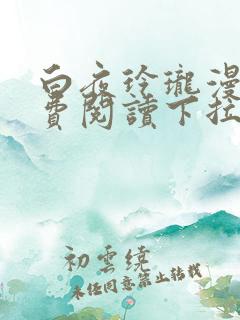 白夜玲瓏漫
費閱讀下拉
初雲繞
未經同意禁止轉載